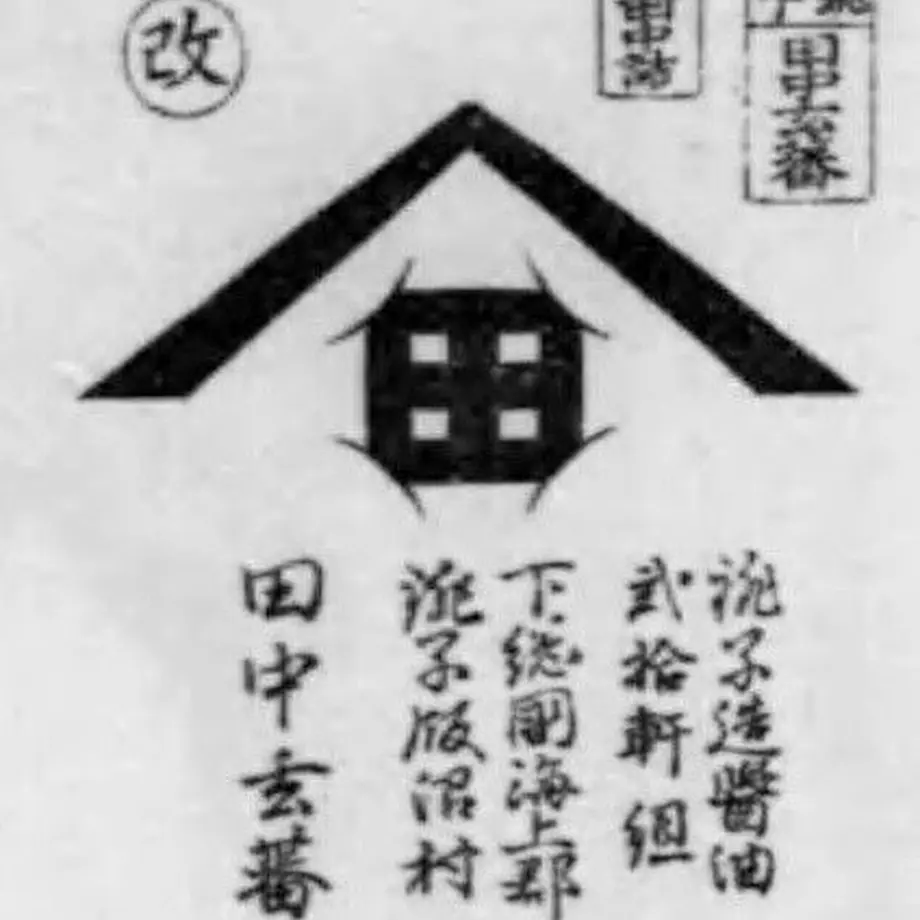 田中玄蕃
改
銚子造醬油
弐拾軒組
下総國海上郡
銚子飯沼村
田中玄蕃